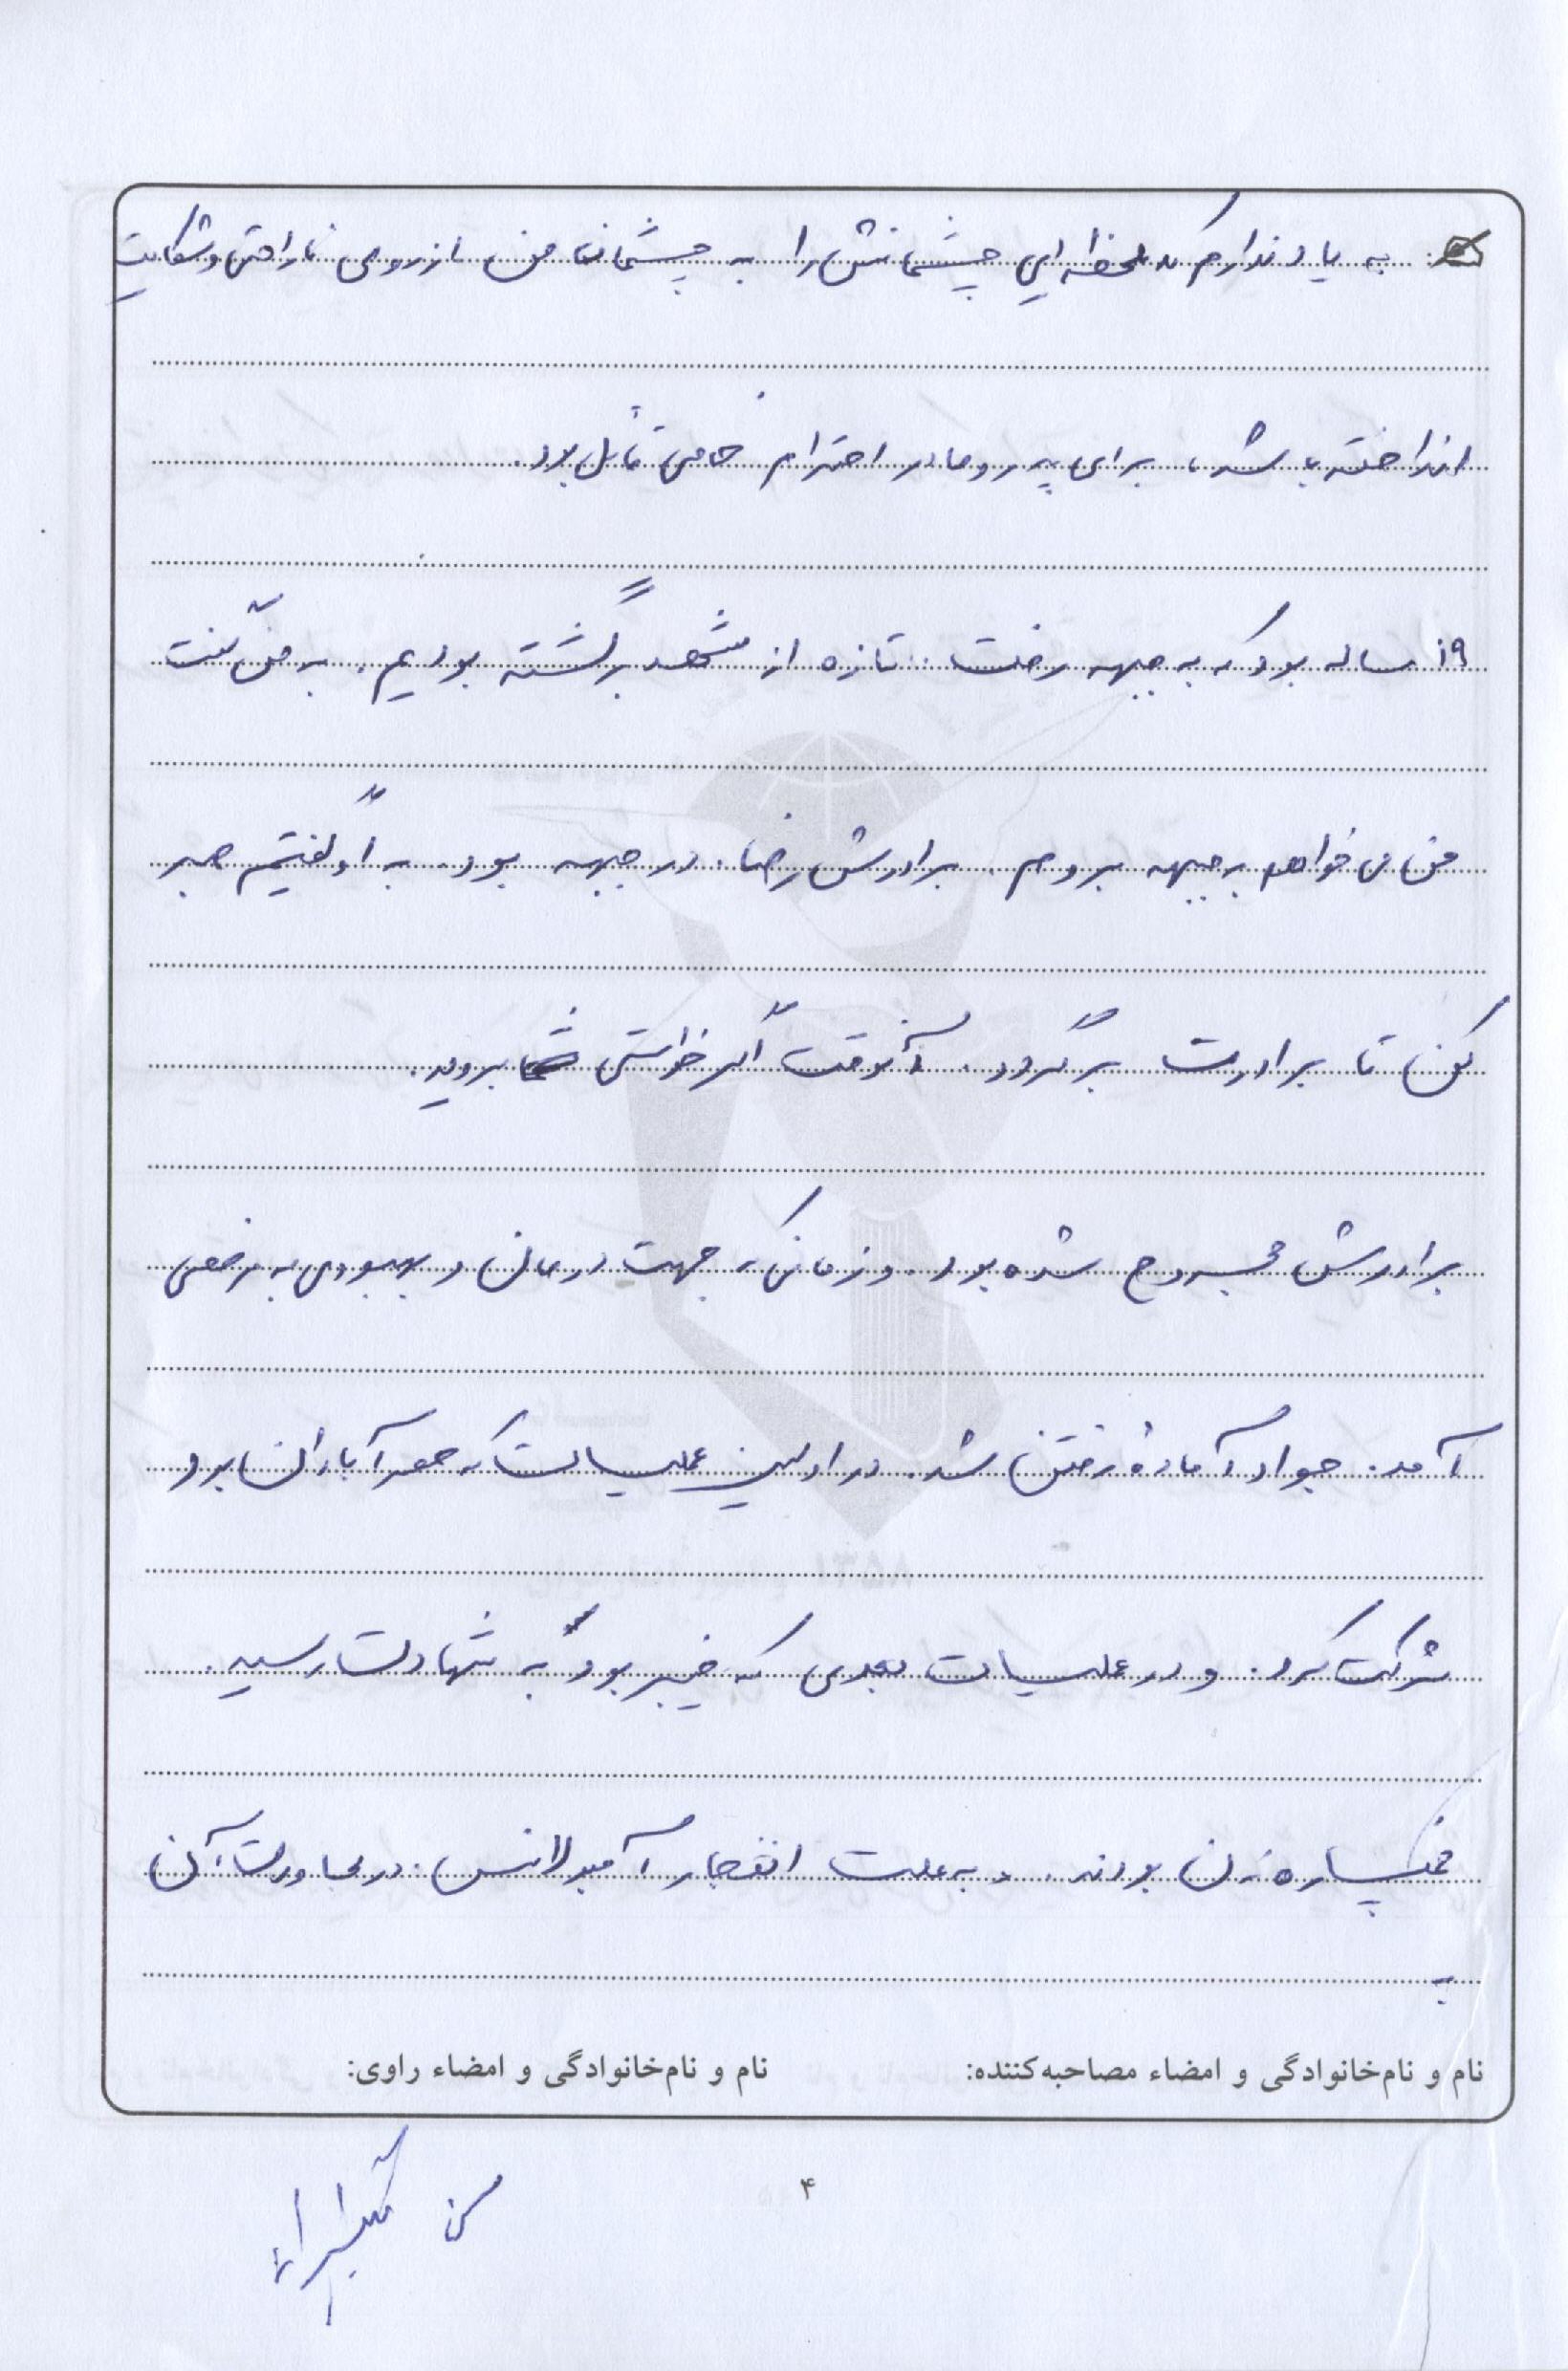 به یاد ندارم که لحظه ای چشمانش را به چشمان من از روی ناراحتی و شکایت
انداخته باشد، برای پدر و مادر احترام خاصی قائل بود.
۱۹ ساله بود که به جبهه رفت. تازه از مشهد برگشته بودیم. به من گفت
من می خواهم به جبهه بروم. برادرش رضا در جبهه بود. به او گفتیم صبر
کن تا برادرت برگردد. آنوقت اگر خواستی شما بروید.
برادرش مجروح شده بود. و زمانی که جهت درمان و بهبودی به مرخصی
آمد. جواد آمادهٔ رفتن شد. در اولین عملیات که آبادان بود
شرکت کرد. و در عملیات بعدی که خیبر بود به شهادت رسید.
خمپاره زن بودند. و به علت انفجار آمبولانس در مجاورت آن
نام و نام‌خانوادگی و امضاء مصاحبه‌کننده: نام و نام‌خانوادگی و امضاء راوی:
۴